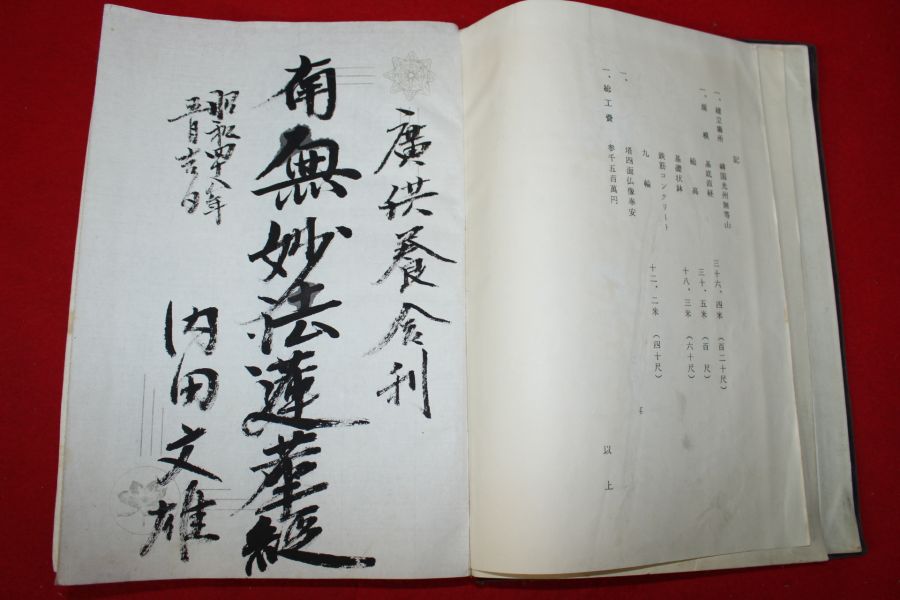 記
一、建立場所 韓国光州無等山
一、規模 基底直経 三十六、四米（百二十尺）
総高 三十、五米（百尺）
基礎状鉢 十八、三米（六十尺）
鉄筋コンクリート
九輪 十二、二米（四十尺）
塔四面仏像奉安
一、
一、総工費 参千五百萬円
以上
廣供養合刊
南無妙法蓮華経
昭和四十八年
五月吉日
内田文雄